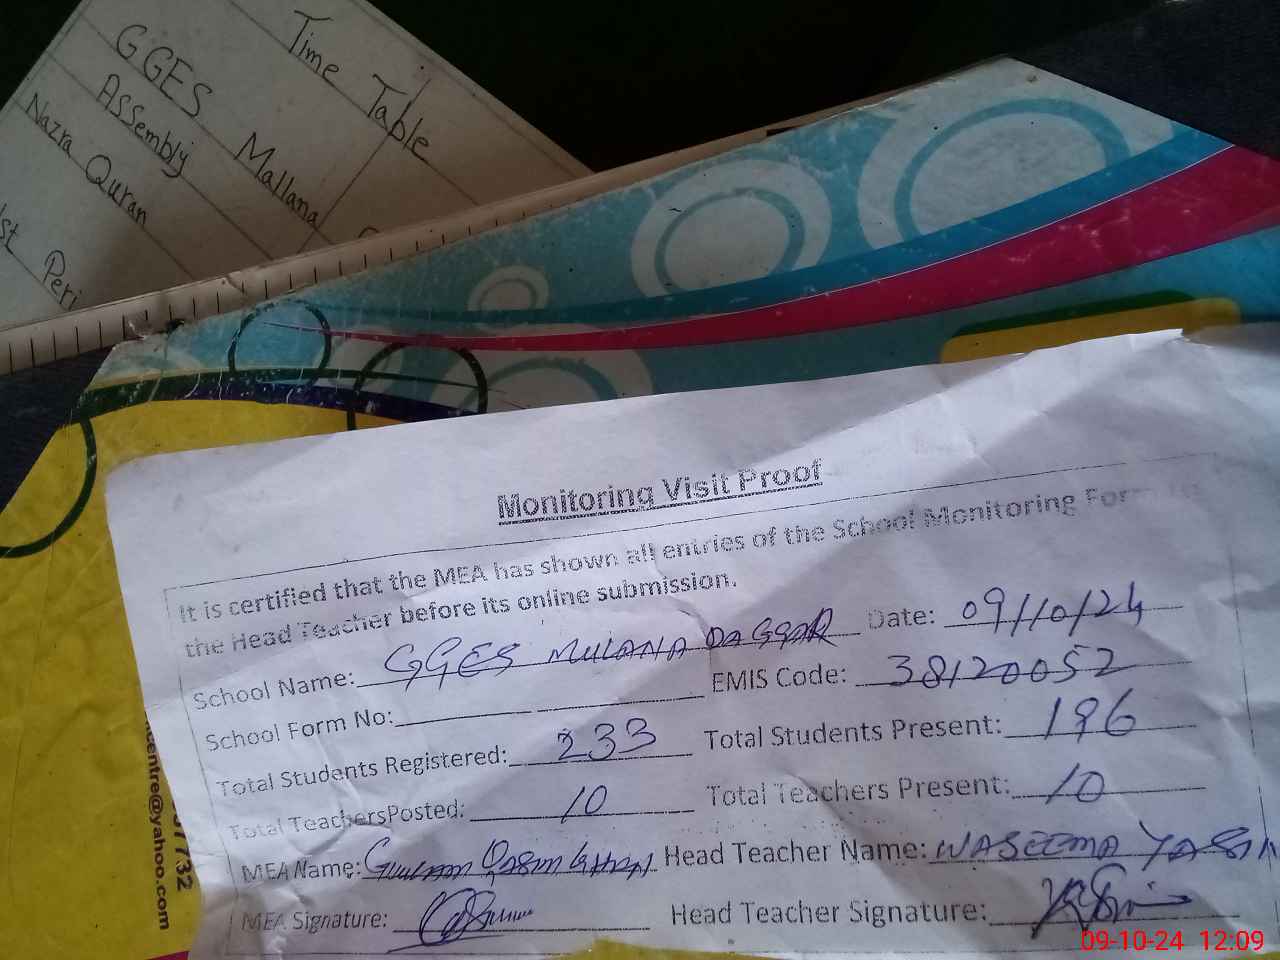 Time Table
GGES Mallana
Assembly
Nazra Quran
1st Peri
Monitoring Visit Proof
It is certified that the MEA has shown all entries of the School Monitoring Form to
the Head Teacher before its online submission.
School Name: GGES MULANA DAGGAR Date: 09/10/24
School Form No: EMIS Code: 38120052
Total Students Registered: 233 Total Students Present: 196
Total TeachersPosted: 10 Total Teachers Present: 10
MEA Name: Ghulam Qasim Khan Head Teacher Name: WASEEMA YASIN
MEA Signature: Head Teacher Signature:
ncentre@yahoo.com
7732
09-10-24 12:09